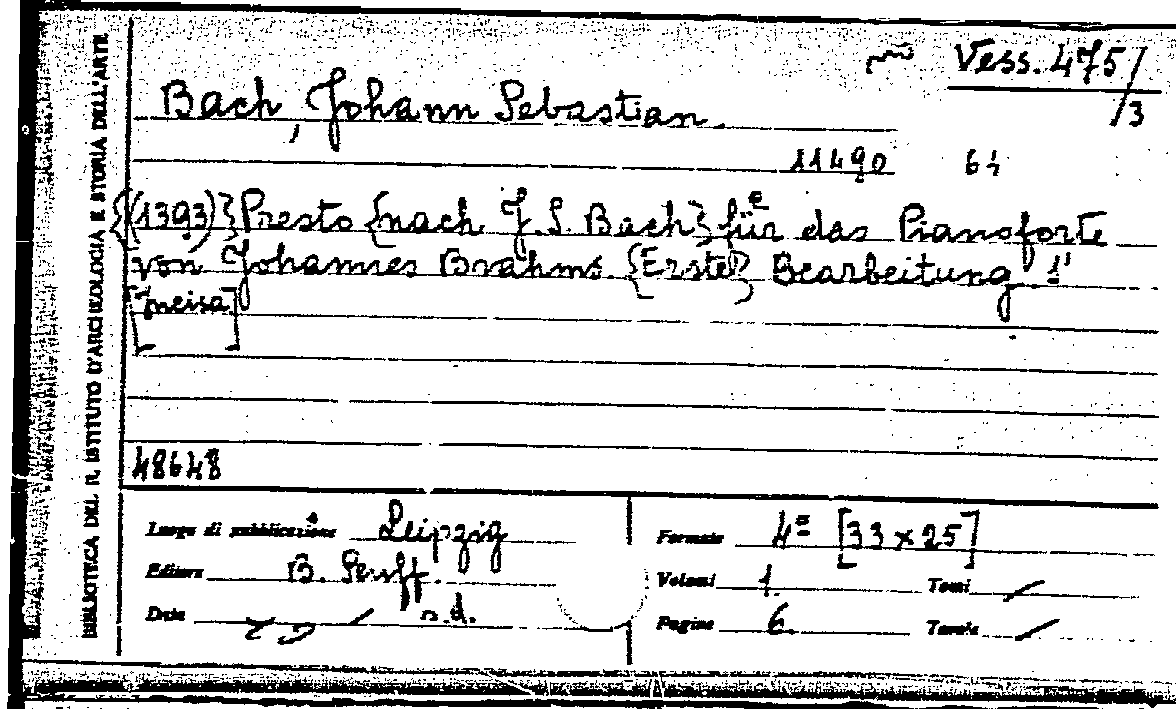 BIBLIOTECA DEL R. ISTITUTO D'ARCHEOLOGIA E STORIA DELL'ARTE
Vess. 475/3
Bach, Johann Sebastian.
11490 64
{(1393)} Presto {nach J. S. Bach} für das Pianoforte
von Johannes Brahms. {Erste} Bearbeitung 1'
[incisa]
48648
Luogo di pubblicazione Leipzig
Formato 4º [33 x 25]
Editore B. Senff.
Volumi 1. Tomi /
Data / s.d.
Pagine 6. Tavole /